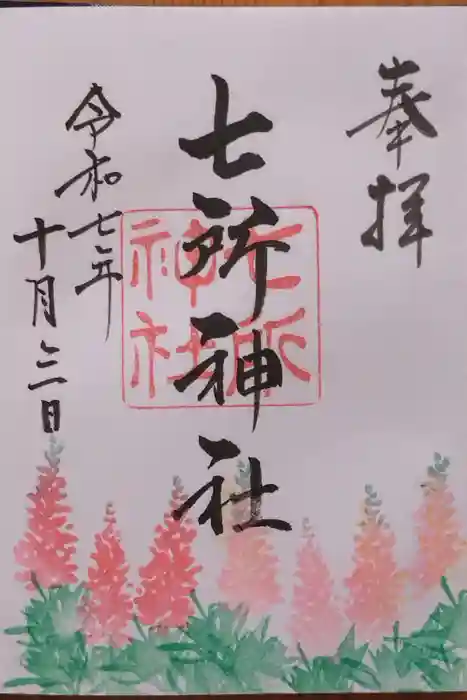 奉拝
七所神社
七所
神社
令和七年
十月三日